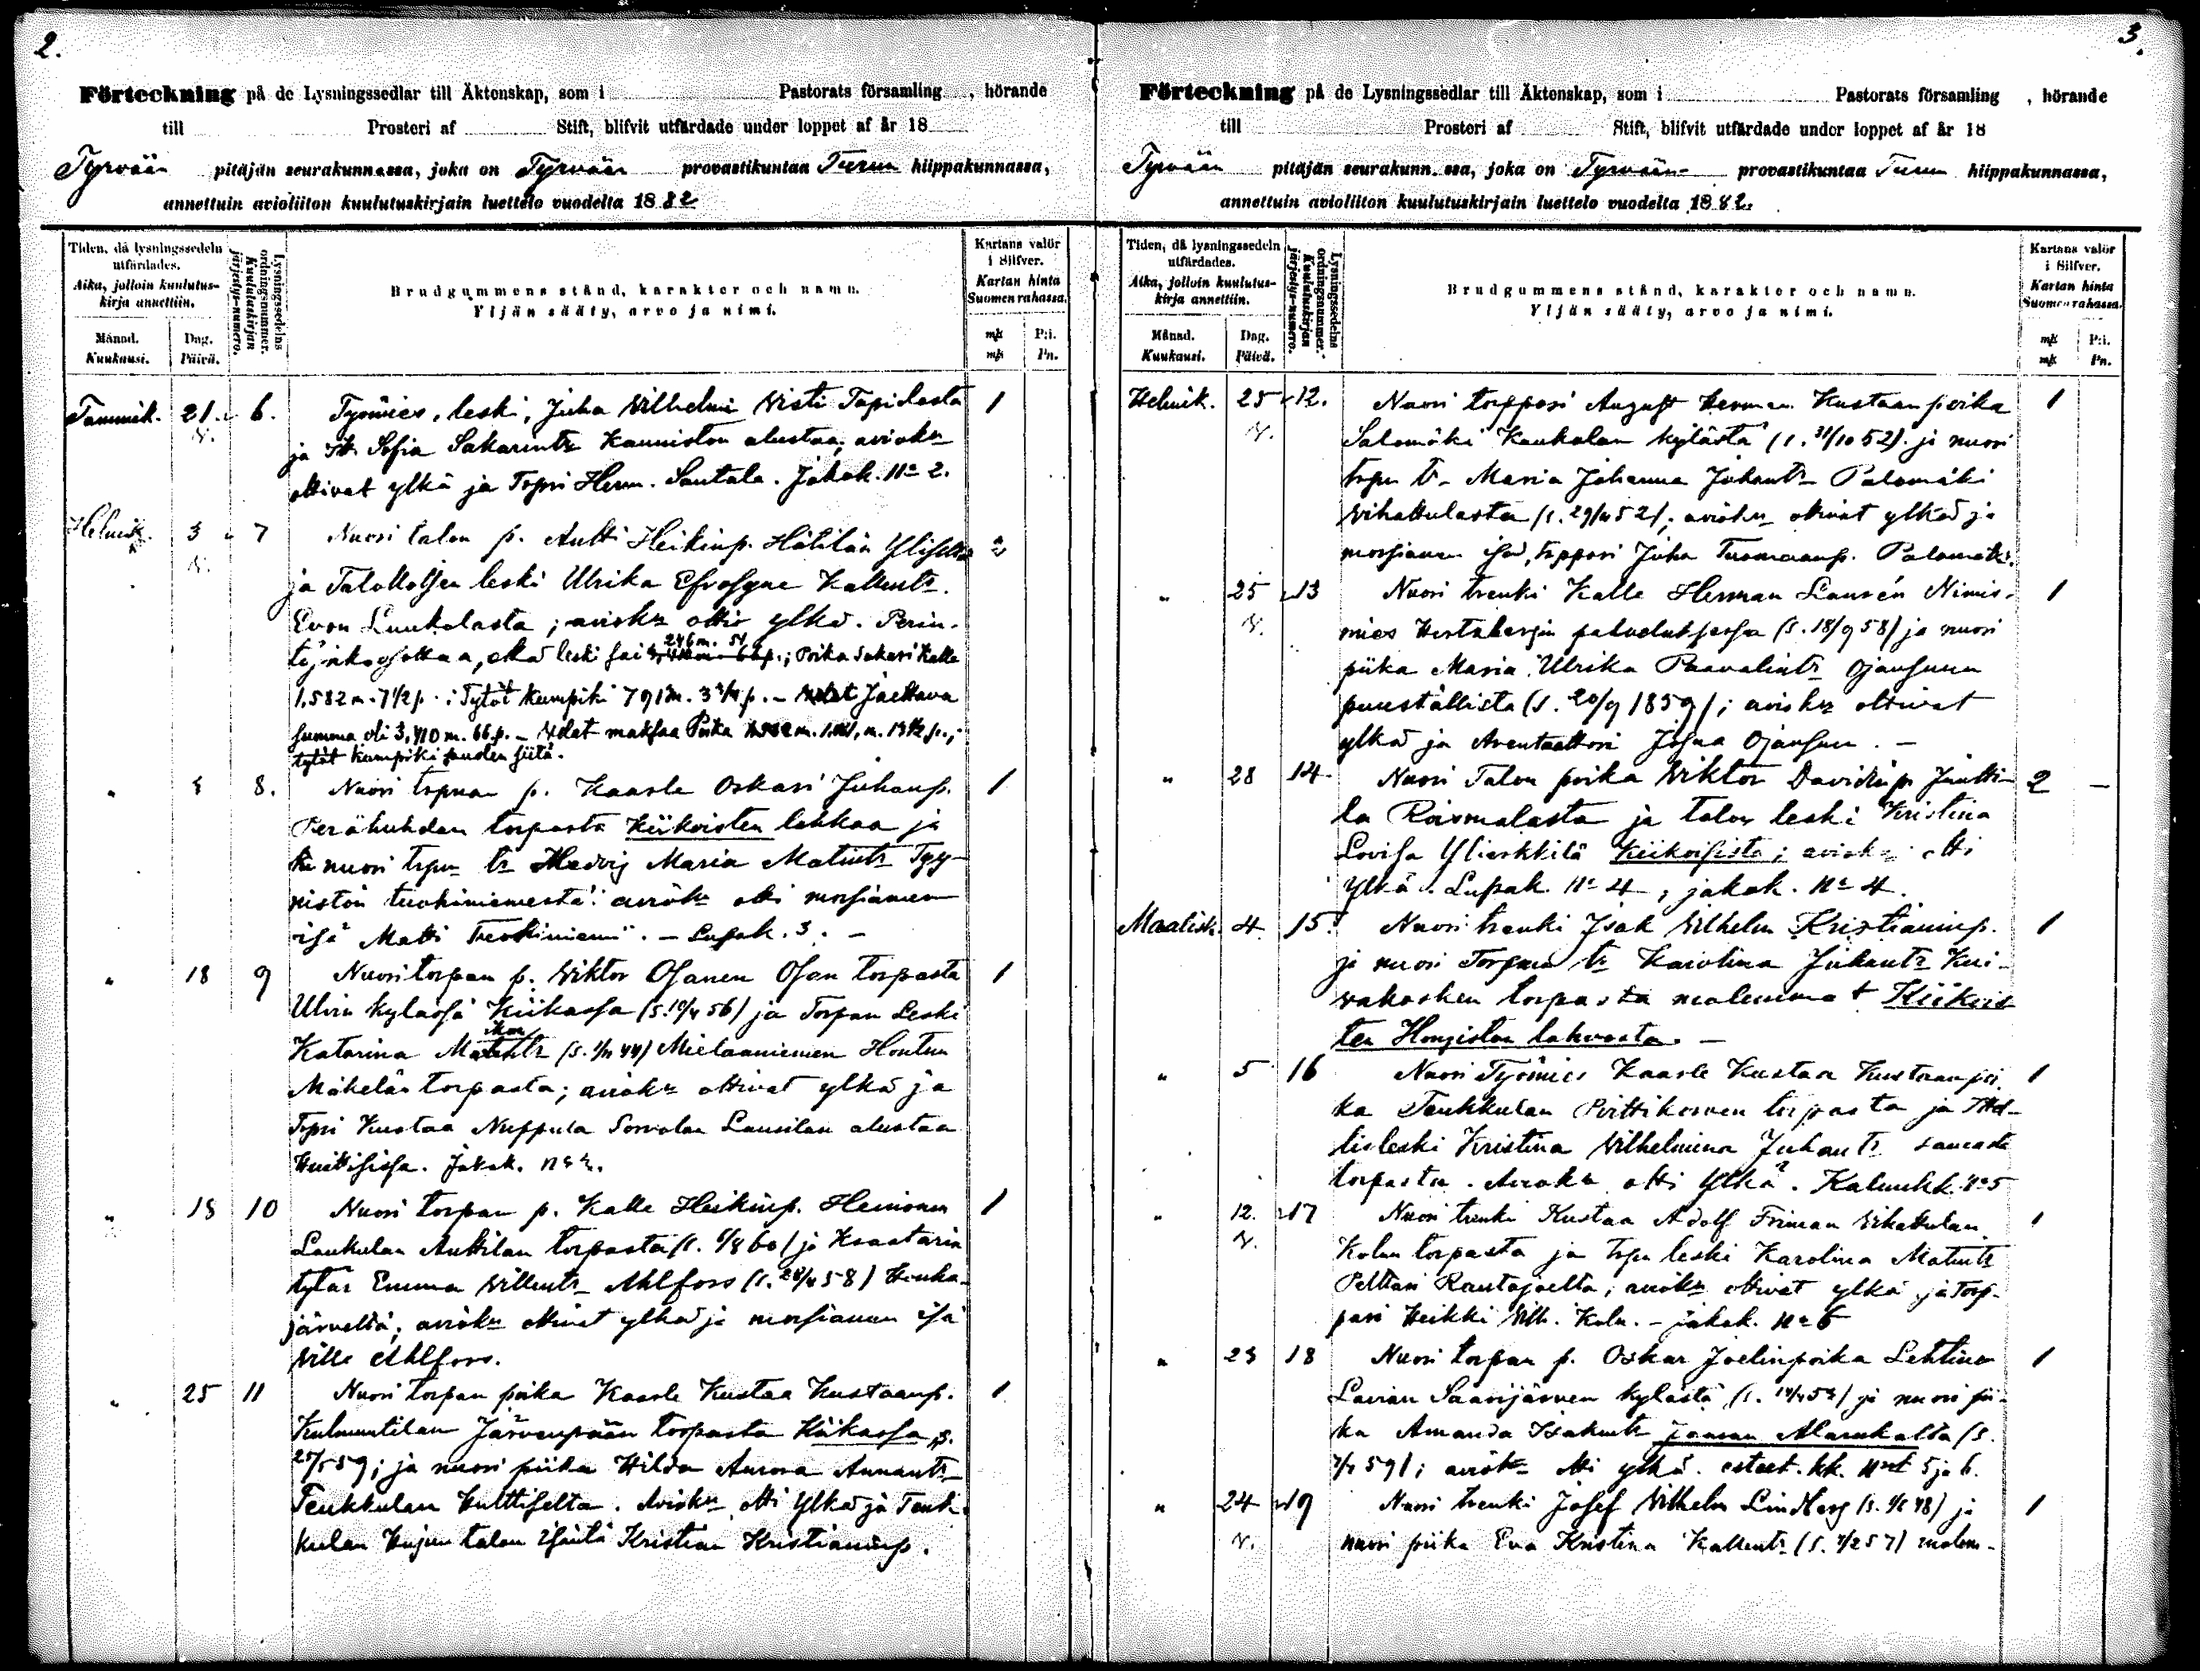 2.
Förteckning på de Lysningssedlar till Äktenskap, som i Pastorats församling, hörande
till Prosteri af Stift, blifvit utfärdade under loppet af år 18
Tyrvään pitäjän seurakunnassa, joka on Tyrvään provastikuntaa Turun hiippakunnassa,
annettuin avioliiton kuulutuskirjain luettelo vuodelta 1882
Tiden, då lysningssedeln utfärdades.
Aika, jolloin kuulutuskirja annettiin.
Månad. Kuukausi.
Dag. Päivä.
Lysningssedelns ordningsnummer. Kuulutuskirjan järjestys-numero.
Brudgummens stånd, karakter och namn.
Yljän sääty, arvo ja nimi.
Kartans valör i Silfver.
Kartan hinta Suomen rahassa.
mk P:i.
mk Pn.
Tammik. 21. 6. Työmies, leski, Juha Wilhelmi Visti Topidasta 1
ja Sofia Sakarintr Kanniston alustaa, aviokn
ottivat ylkä ja Topri Herm. Santala. Jakok. No 2.
Helmik. 3 7 Nuori talon p. Antti Heikinp. Hätilän
ja leski Ulrika Efrosyne Kallentr.
Evon Luukalasta; aviokn otti ylkä. Perin-
että leski sai 246 m. ; Poika Kalle
1,582 m. 7 1/2 p. : Tytöt kumpiki 791 m. 3 3/4 p. – Jaettava
summa oli 3,410 m. 66 p. – Velat maksaa Poika
tytöt kumpiki puolen siitä.
" 8. Nuori torpan p. Kaarle Oskari Juhanp. 1
Peräkuhdan torpasta Kiikoisten lohkoa ja
nuori trpn tr Hedvig Maria Matintr Tyy-
nistön tuohiniemestä: aviokn otti morsiamen
isä Matti Tuohiniemi. – Lupak. 3. –
" 18 9 Nuori torpan p. Viktor Osanen Osan torpasta 1
Ulvin kylässä Kiikassa ja Torpan Leski
Katarina Mielaaniemen Hontun
Mäkelän torpasta; aviokn ottivat ylkä ja
Topri Kustaa Nuppula Sorvolan Lausilan alustaa
Huittisissa. Jakok. No 2.
" 18 10 Nuori torpan p. Kalle Heikinp. Heinonen 1
Laukulan Anttilan torpasta ja
tytär Emma Villentr Ahlfors (s. 58) Houha-
järveltä; aviokn ottivat ylkä ja morsiamen isä
Ville Ahlfors.
" 25 11 Nuori torpan poika Kaarle Kustaa Kustaanp. 1
Kulmuntilan Järvenpään torpasta Kiikassa s.
25/5 59; ja nuori piika Hilda Aurora Annantr
Teukkulan Hulttiselta. Aviokn otti Ylkä ja Teuk-
kulan Kujun talon isäntä Kristian Kristianinp.
3.
Förteckning på de Lysningssedlar till Äktenskap, som i Pastorats församling, hörande
till Prosteri af Stift, blifvit utfärdade under loppet af år 18
Tyrvään pitäjän seurakunnassa, joka on Tyrvään provastikuntaa Turun hiippakunnassa,
annettuin avioliiton kuulutuskirjain luettelo vuodelta 1882.
Tiden, då lysningssedeln utfärdades.
Aika, jolloin kuulutuskirja annettiin.
Månad. Kuukausi.
Dag. Päivä.
Lysningssedelns ordningsnummer. Kuulutuskirjan järjestys-numero.
Brudgummens stånd, karakter och namn.
Yljän sääty, arvo ja nimi.
Kartans valör i Silfver.
Kartan hinta Suomen rahassa.
mk P:i.
mk Pn.
Helmik. 25 12. Nuori torppari August Herman Kustaanpoika 1
Salomäki Kaukolan kylästä (s. 31/10 52) ja nuori
trpn tr Maria Johanna Juhantr Palomäki
Vihattulasta; aviokn ottivat ylkä ja
morsiamen isä, torppari Juha Tuomaanp. Palomäki.
" 25 13 Nuori trenki Kalle Herman Laurén Nimis- 1
mies Hertzbergin palveluksessa (s. 18/9 58) ja nuori
piika Maria Ulrika Paavalintr Ojansuun
puuställista (s. 20/9 1859); aviokn ottivat
ylkä ja Arentaattori Josua Ojansuu. –
" 28 14 Nuori Talon poika Viktor Davidinp. Juutti- 2 –
la Roismalasta ja talon leski Kristina
Lovisa Ylierkkilä Kiikoisista; aviokn otti
Ylkä. Lupak. No 4, jakok. No 4.
Maalisk. 4 15. Nuori trenki Isak Vilhelm Kristianinp. 1
ja nuori Torpan tr Karolina Juhantr Kui-
vakosken torpasta molemmat Kiikois-
ten Hongiston lahkosta. –
" 5 16 Nuori Työmies Kaarle Kustaa Kustaanpoi- 1
ka Teukkulan torpasta ja Itel-
lisleski Kristina Vilhelmina Juhantr
torpasta. Aviokn otti Ylkä. No 5
" 12. 17 Nuori trenki Kustaa Adolf Friman Vihattulan 1
Kolun torpasta ja trpn leski Karolina Matintr
Pelttari Rautajoelta; aviokn ottivat ylkä ja torp-
pari Heikki Vilh. Kolu. – jakok. No 6
" 23 18 Nuori torpan p. Oskar Joelinpoika Lehtinen 1
Lavian Saarijärven kylästä ja nuori pii-
ka Amanda Isakintr Jaaran Alasukolta (s.
59); aviokn otti ylkä. estest. kk. Not 5 ja 6.
" 24 19 Nuori trenki Josef Vilhelm Lindberg ja 1
nuori piika Eva Kristina Kallentr molem-